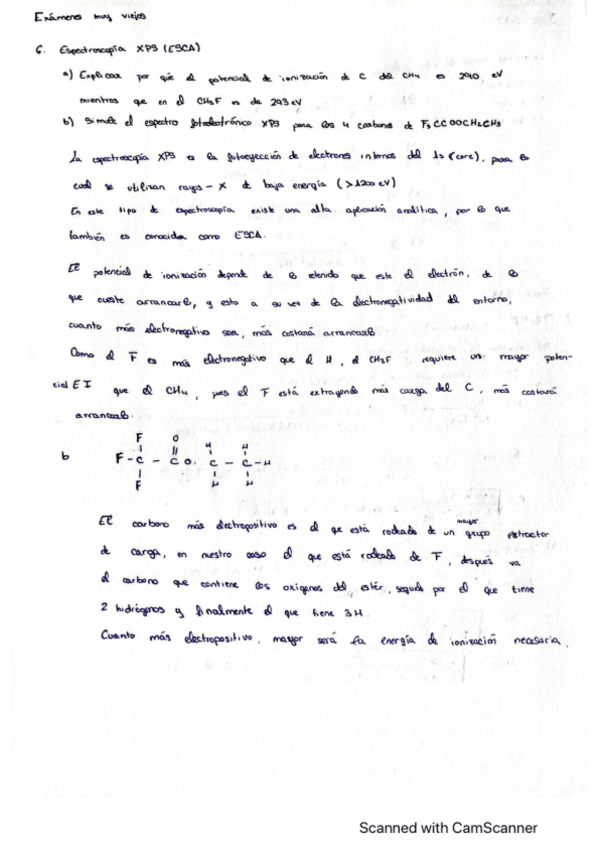 Exámenes muy viejos
6. Espectroscopía XPS (ESCA)
a) Explicar por qué el potencial de ionización de C del CH4 es 290 eV
mientras que en el CH3F es de 293 eV
b) Simule el espectro fotoelectrónico XPS para los 4 carbonos de F3CCOOCH2CH3
La espectroscopía XPS es la fotoeyección de electrones internos del 1s (core), para lo
cual se utilizan rayos-X de baja energía (>1200 eV)
En este tipo de espectroscopía existe una alta aplicación analítica, por lo que
también es conocida como ESCA.
El potencial de ionización depende de lo retenido que este el electrón, de lo
que cueste arrancarlo, y esto a su vez de la electronegatividad del entorno,
cuanto más electronegativo sea, más costará arrancarlo
Como el F es más electronegativo que el H, el CH3F requiere un mayor poten-
cial EI que el CH4, pues el F está extrayendo más carga del C, más costará
arrancarlo.
F O H H
b F-C-C O. C-C-H
F H H
El carbono más electropositivo es el qe está rodeado de un mayor grupo extractor
de carga, en nuestro caso el que está rodeado de F, después va
el carbono que contiene los oxígenos del éster, seguido por el que tiene
2 hidrógenos y finalmente el que tiene 3H.
Cuanto más electropositivo, mayor será la energía de ionización necesaria.
Scanned with CamScanner